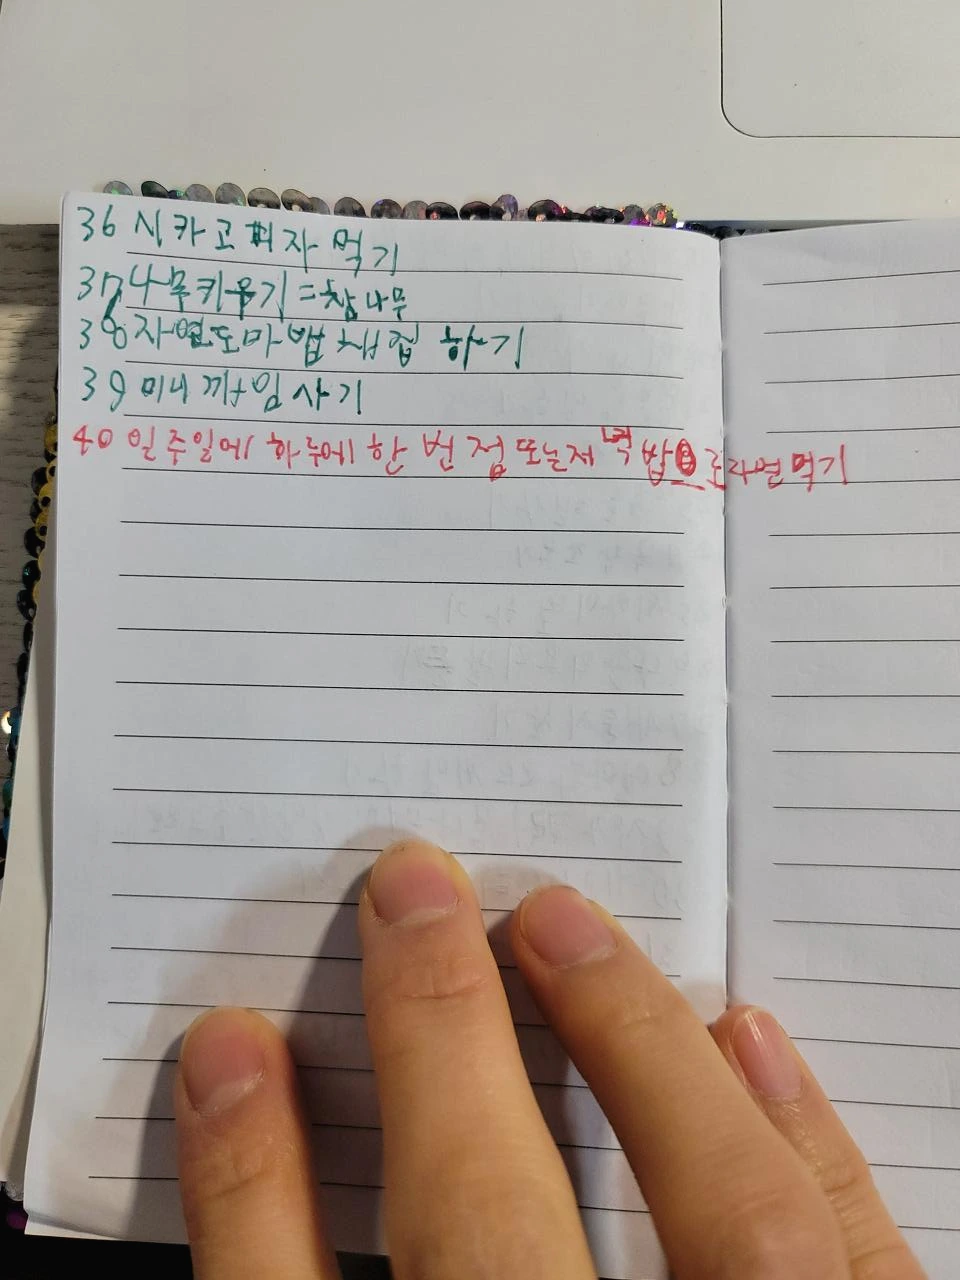 36 시카고 피자 먹기
37 나무키우기=참나무
38 자연도마뱀 채집 하기
39 미니 게임 사기
40 일주일에 하루에 한 번 점 또는 저녁 밥으로 라면 먹기